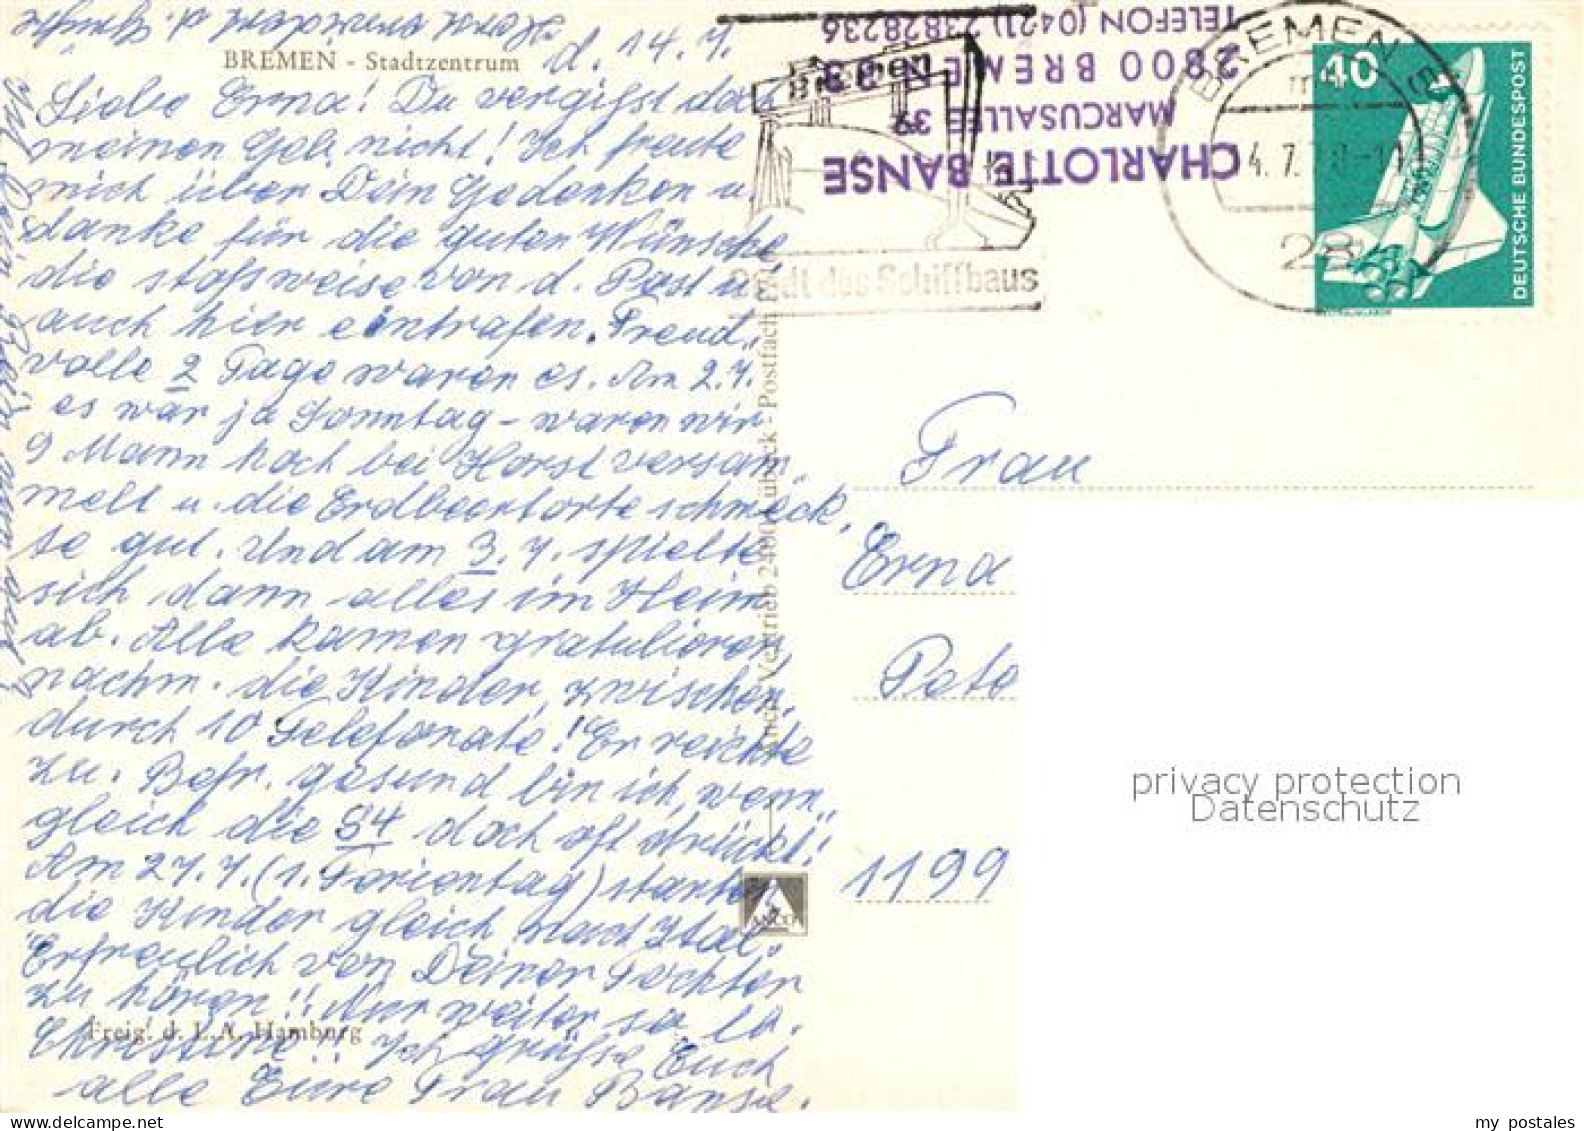 BREMEN - Stadtzentrum
d. 14. 7.
Liebe Erna! Du vergißst doch
meinen Geb. nicht! Ich freute
mich über Dein Gedenken u.
danke für die guten Wünsche
die stoßweise von d. Post u.
auch hier eintrafen. Freud.,
volle 2 Tage waren es. Am 2.7.
es war ja Sonntag - waren wir
9 Mann hoch bei Horst versam
melt u. die Erdbeertorte schmeck,
te gut. Und am 3. 7. spielte
sich dann alles im Heim
ab. Alle kamen gratulieren,
nachm. die Kinder, zwischen,
durch 10 Telefonate! Er reichte
zu. Befr. gesund bin ich, wenn,,
gleich die 84 doch oft drückt!
Am 27. 7. (1. Ferientag) starten
die Kinder gleich nach Ital.
Erfreulich von Deiner Tochter
zu hören!! Nur weiter so la.
Christine!! Ich grüße Euch
alle Eure Frau Banse.
Freig. d. L.A. Hamburg
Vertrieb 2400 Lübeck - Postfach
ANCO
CHARLOTTE BANSE
MARCUSALLEE 39
2800 BREMEN 33
TELEFON (0421) 23828236
Bremen
Stadt des Schiffbaus
BREMEN
40
DEUTSCHE BUNDESPOST
Frau
Erna
1199
privacy protection
Datenschutz
my postales